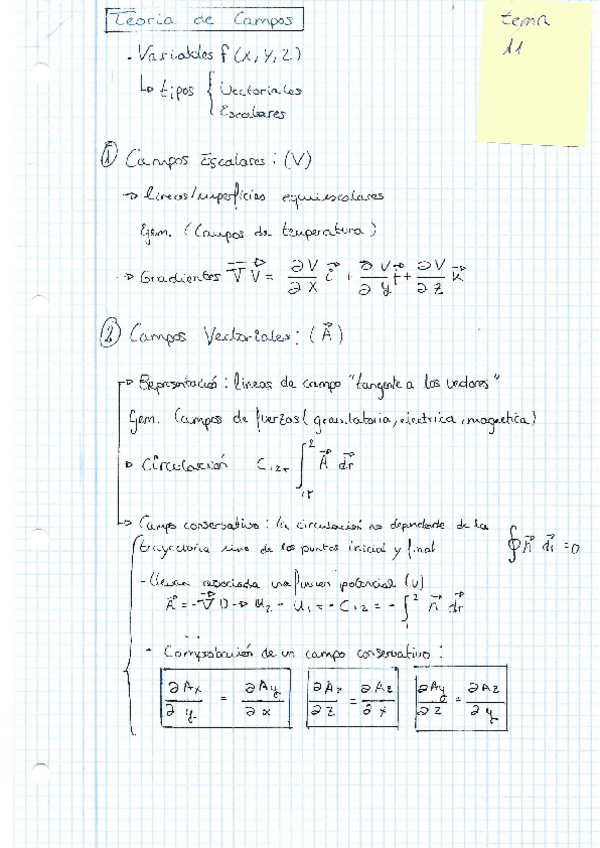 Teoría de Campos
tema
11
. Variables f (x, y, z)
↳ tipos { Vectoriales
Escalares
① Campos Escalares : (V)
→ lineas/superficies equiescalares
Ejem. (Campos de temperatura)
→ Gradientes ∇V = ∂V/∂x i + ∂V/∂y j + ∂V/∂z k
② Campos Vectoriales : (A)
→ Representación : lineas de campo "tangente a los vectores"
Ejem. Campos de fuerzas (gravitatoria, electrica, magnetica)
→ Circulación C₁₂Γ ∫ A dr
→ Campo conservativo : la circulación no depende de la
trayectoria sino de los puntos inicial y final ∮ A dr = 0
- Llevan asociada una función potencial (U)
A = -∇U → U₂ - U₁ = - C₁₂ = - ∫₁² A dr
- Comprobación de un campo conservativo :
∂Ax/∂y = ∂Ay/∂x ∂Ax/∂z = ∂Az/∂x ∂Ay/∂z = ∂Az/∂y